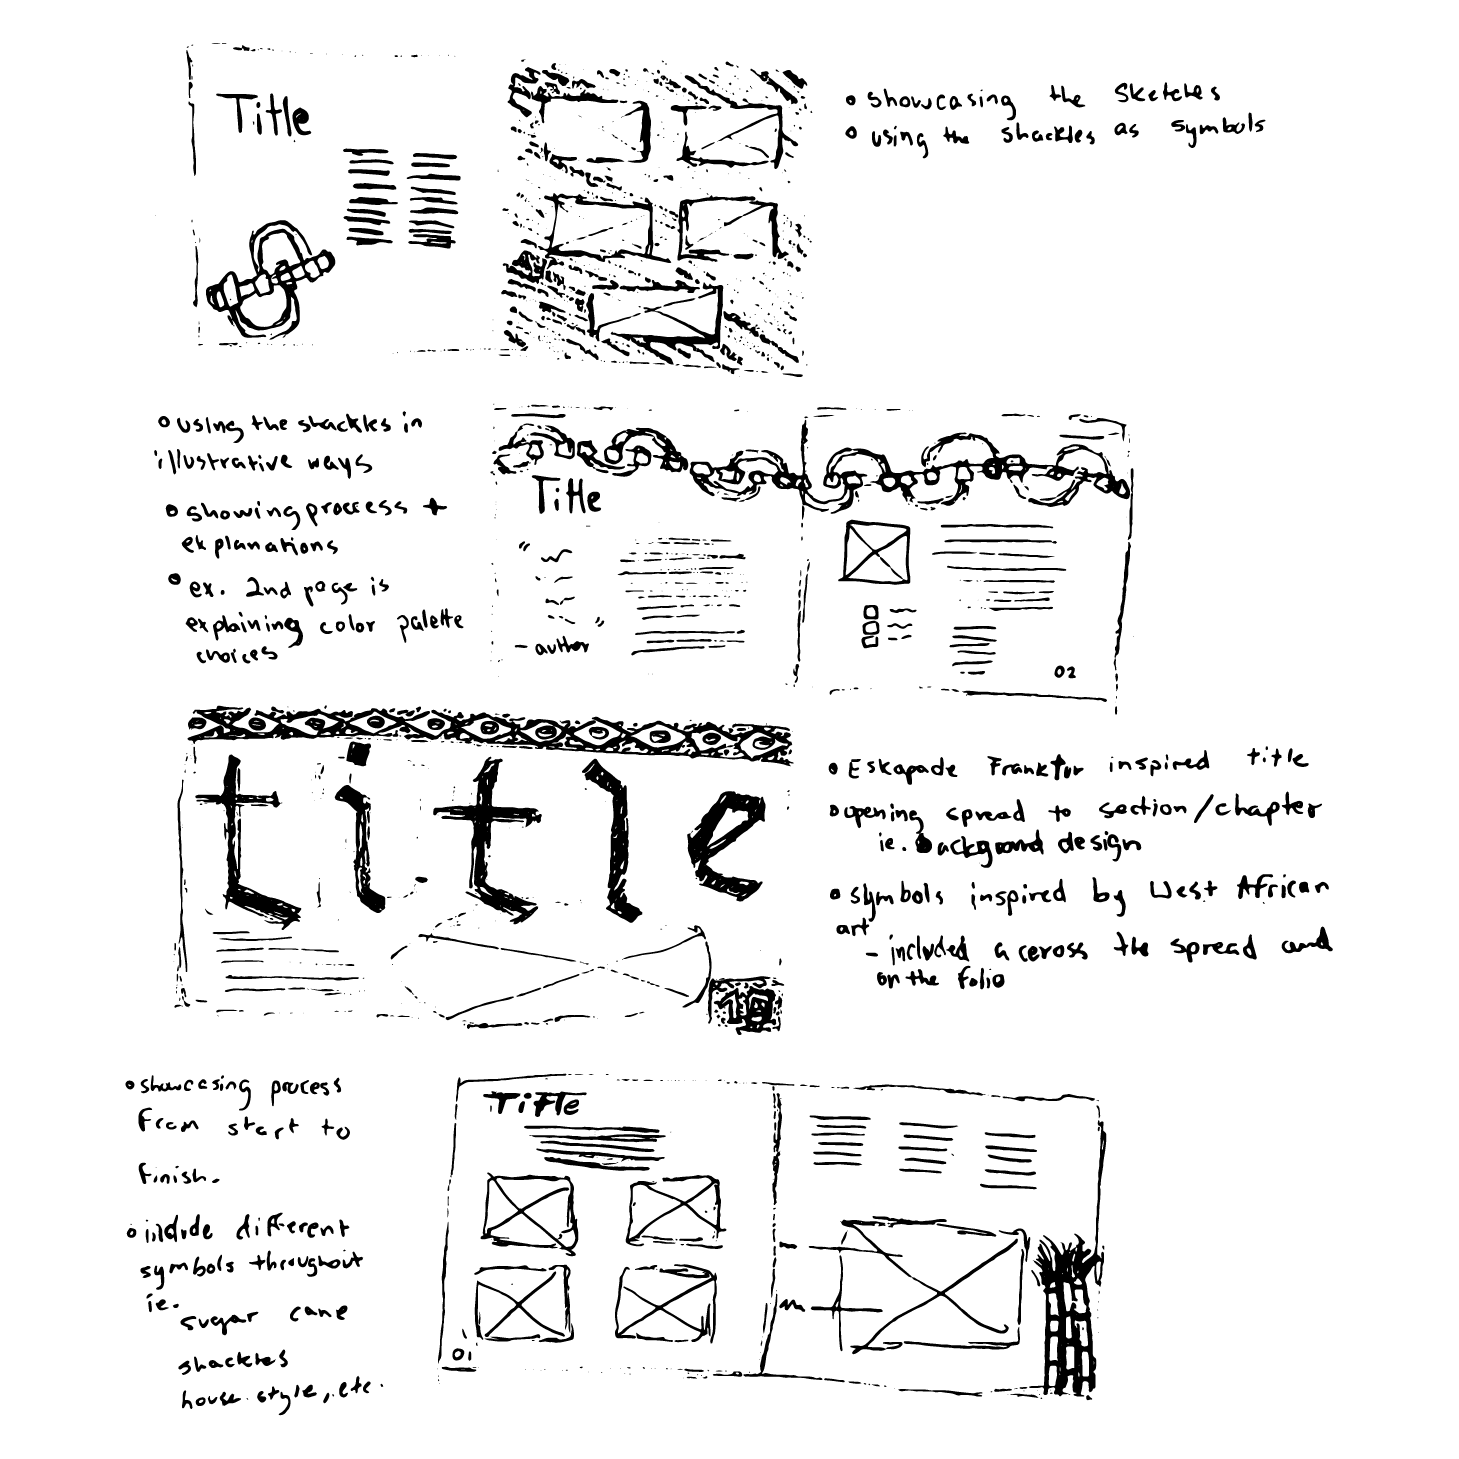 Title
• showcasing the Sketches
• using the shackles as symbols
• using the shackles in
illustrative ways
• showing process +
explanations
• ex. 2nd page is
explaining color palette
choices
Title
“
”
- author
02
title
18
• Eskapade Fraktur inspired title
• opening spread to section/chapter
ie. background design
• symbols inspired by West African
art
- included accross the spread and
on the folio
• showcasing process
from start to
finish.
• include different
symbols throughout
ie.
sugar cane
shackles
house style, etc.
Title
01